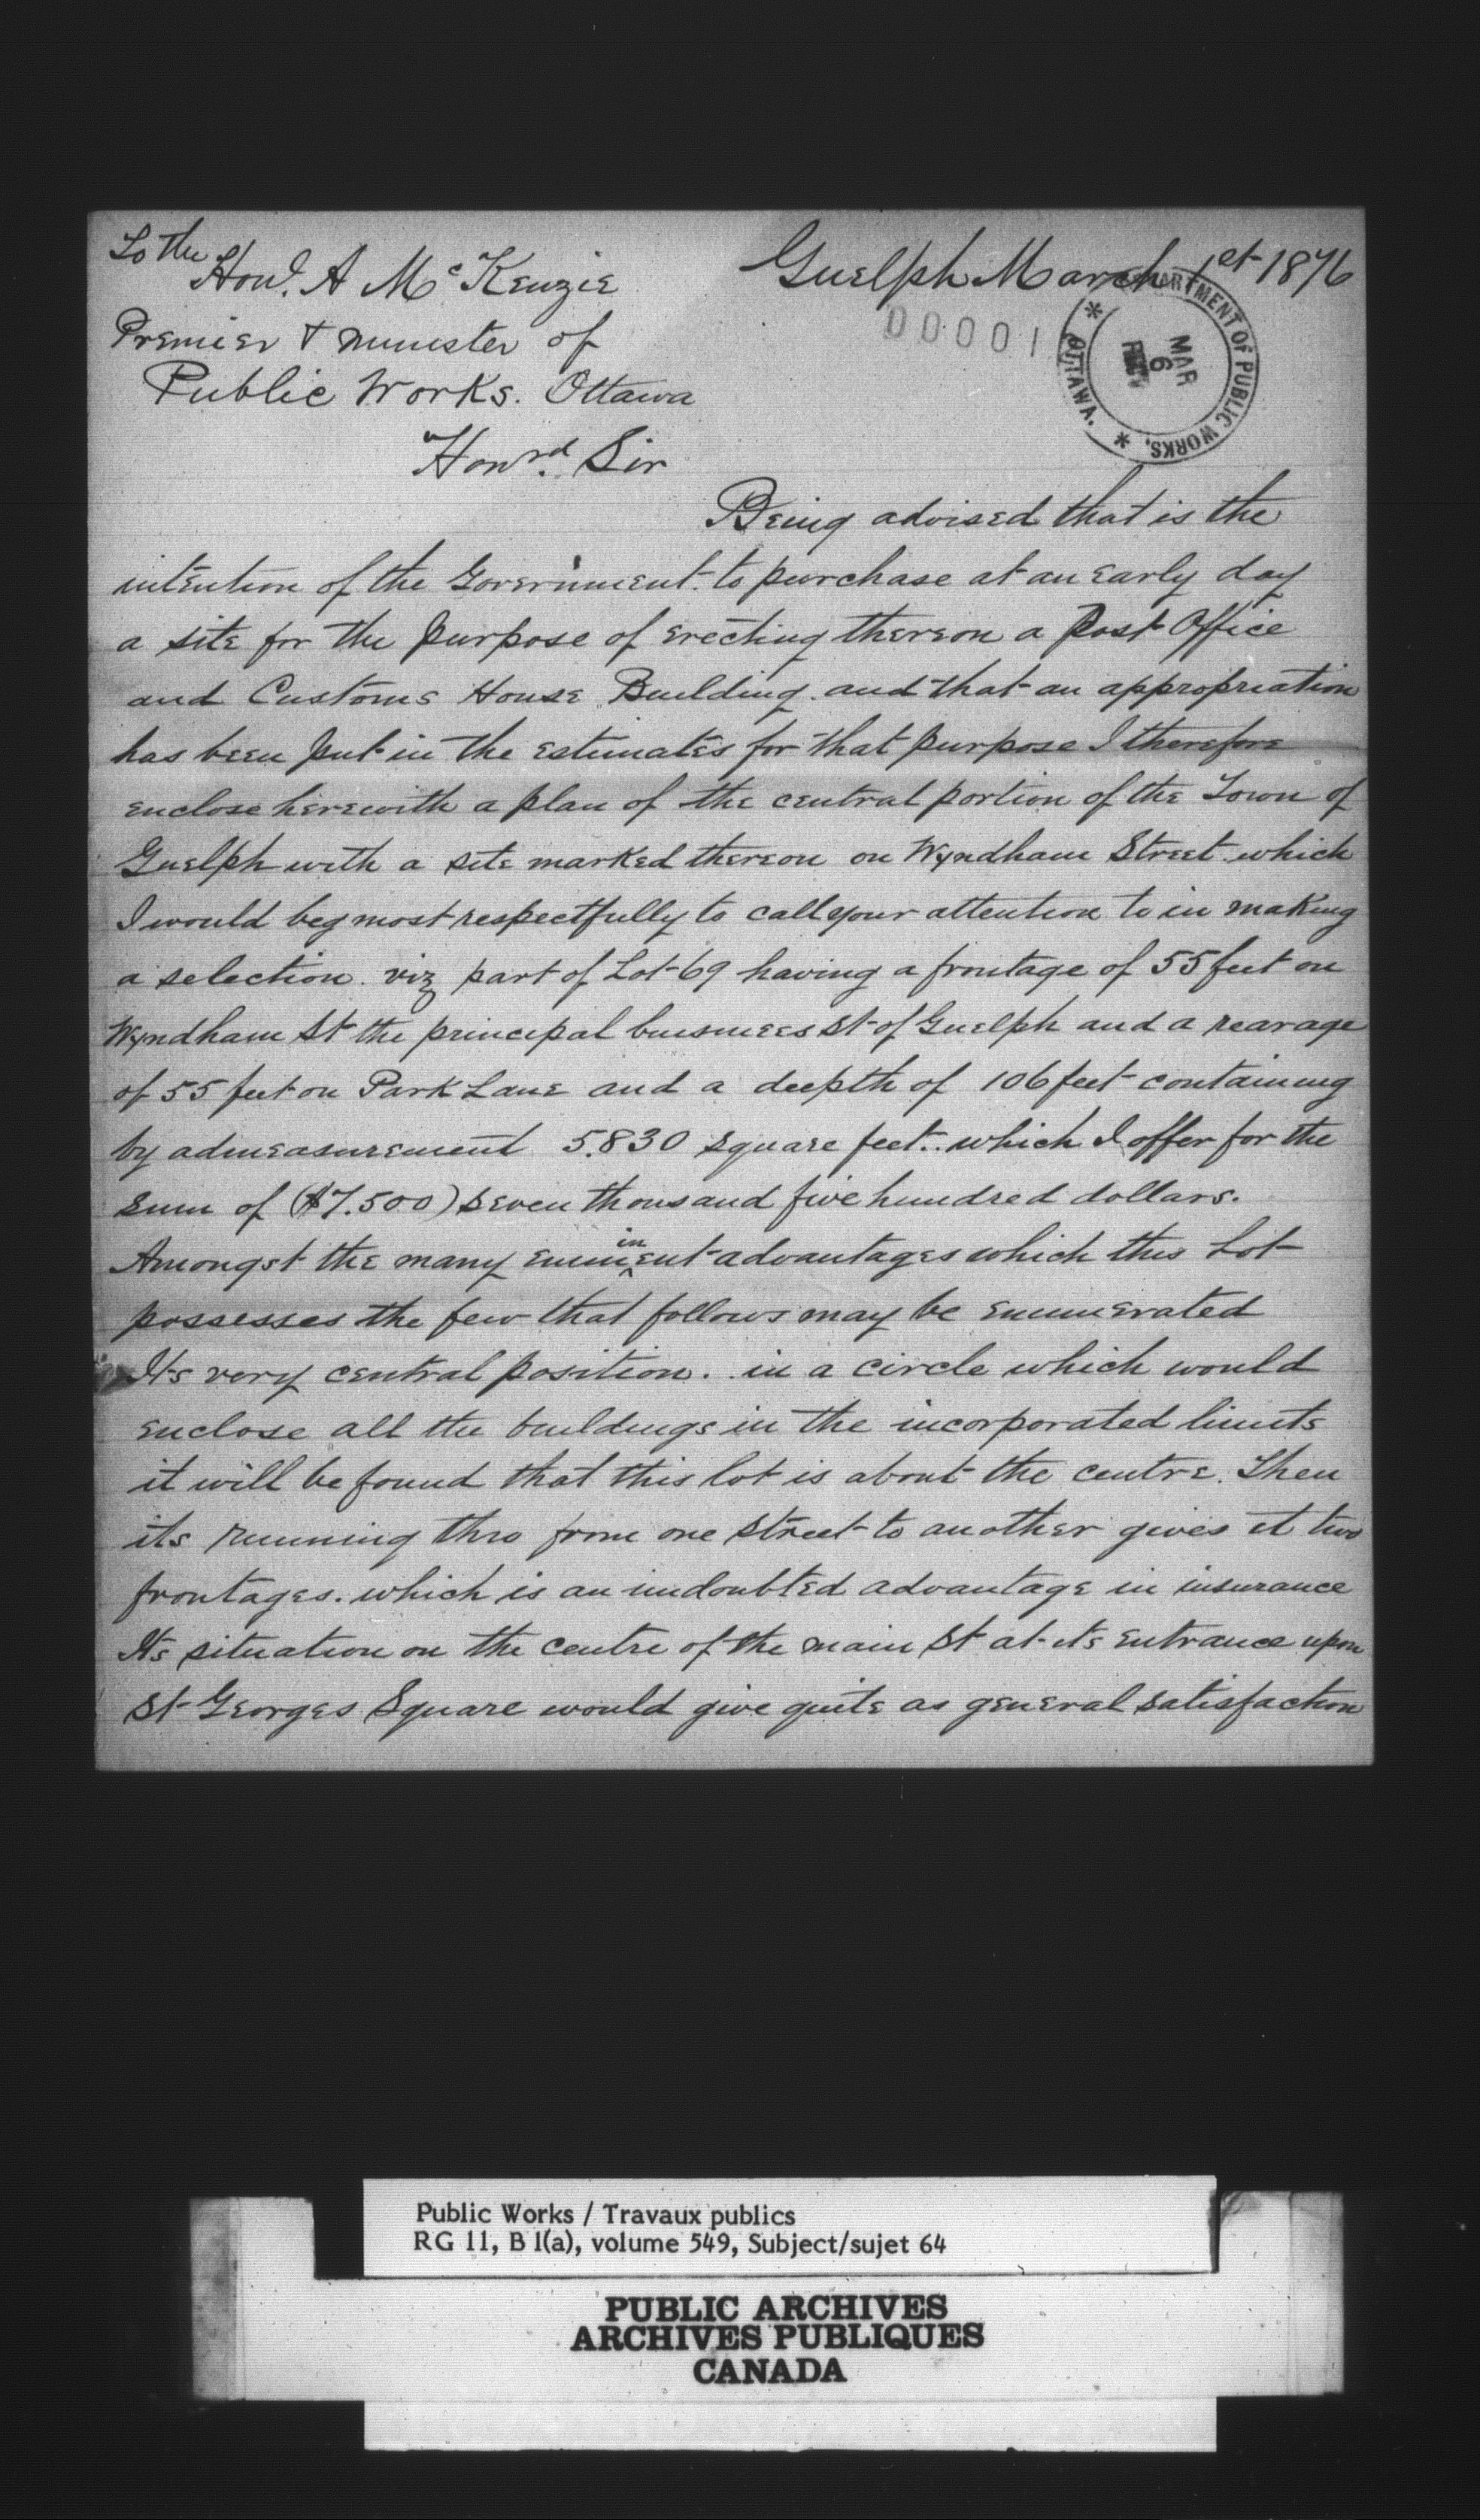 To the
Guelph March 1st 1876
Hon'l. A McKenzie
00001
Premier & Minister of
Public Works. Ottawa
DEPARTMENT OF PUBLIC WORKS, * OTTAWA. *
MAR
6
Honrd. Sir
Being advised that is the
intention of the Government. to purchase at an early day
a site for the purpose of erecting thereon a Post Office
and Customs House Building. and that an appropriation
has been put in the estimates for that purpose I therefore
enclose herewith a plan of the central portion of the Town of
Guelph with a site marked thereon on Wyndham Street which
I would beg most respectfully to call your attention to in making
a selection. viz part of Lot 69 having a frontage of 55 feet on
Wyndham St the principal buisness St of Guelph and a rearage
of 55 feet on Park Lane and a deepth of 106 feet containing
by admeasurement 5.830 square feet.. which I offer for the
sum of ($7.500) seven thousand five hundred dollars.
Amongst the many eminent advantages which this Lot
possesses the few that follows may be enumerated
Its very central position. . in a circle which would
enclose all the buildings in the incorporated limits
it will be found that this lot is about the centre. Then
its running thro from one street to another gives it two
frontages. which is an undoubted advantage in insurance
Its situation on the centre of the main St at its entrance upon
St Georges Square would give quite as general satisfaction
Public Works / Travaux publics
RG 11, B 1(a), volume 549, Subject/sujet 64
PUBLIC ARCHIVES
ARCHIVES PUBLIQUES
CANADA